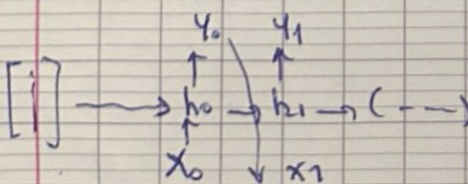 y₀ y₁
[i] → h₀ → h₁ → ( - - → )
x₀ x₁